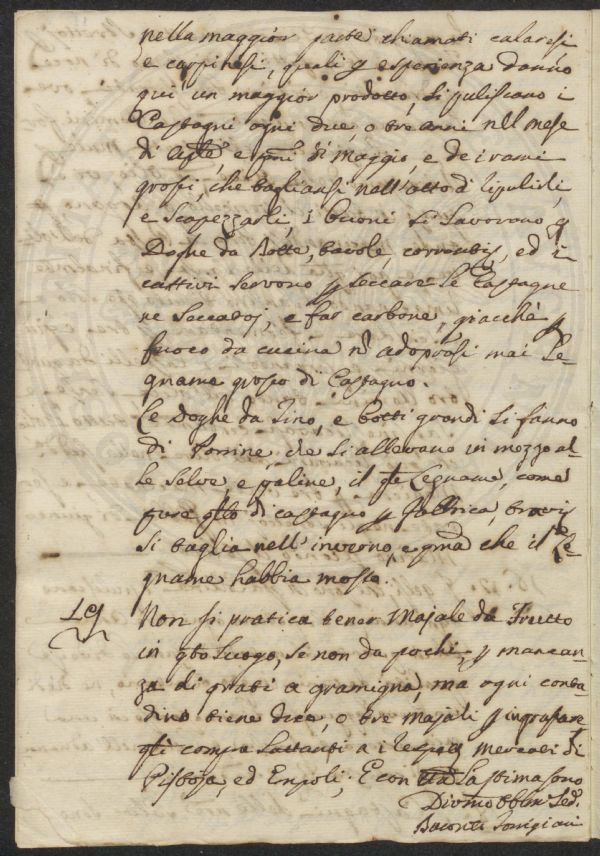 nella maggior parte chiamati calaresi
e carpinesi, quali p esperienza danno
qui un maggior prodotto, si puliscano i
Castagni ogni due, o tre anni nel mese
di Aple, e pmi di Maggio, e de i rami
grossi, che tagliansi nell'atto di ripulirli,
e Scapezzarli, i buoni si Lavorano p
Doghe da Botte, tavole, correnti, ed i
cattivi servono p seccare le Castagne
ne Seccatoj, e far carbone, giacchè p
fuoco da cucina n adoprasi mai Le-
gname grosso di Castagno.
Le Doghe da Tino, e botti grandi si fanno
di che si allevano in mezzo al-
le Selve e paline, il qle Legname, come
pure qllo di castagno p Fabbrica,
si taglia nell'inverno, e pma che il Le-
gname habbia mosso.
19 Non si pratica tener Majale da Frutto
in qto Luogo, se non da pochi p mancan-
za di prati a gramigna, ma ogni conta-
dino tiene due, o tre majali p ingrassare
qli compra Lattanti a i mercati di
Pistoja, ed Empoli. E con La stima sono